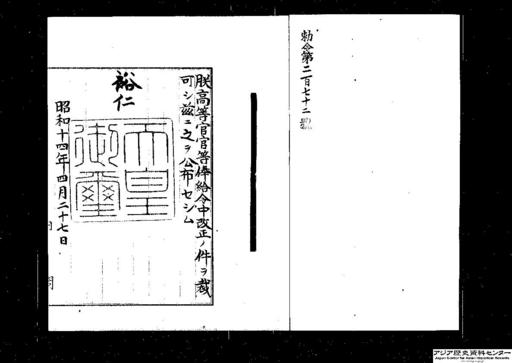 勅令第二百七十二
朕高等官官等俸給令中改正ノ件ヲ裁
可シ茲ニ之ヲ公布セシム
裕仁
天皇
御璽
昭和十四年四月二十七日
アジア歴史資料センター
Japan Center for Asian Historical Records